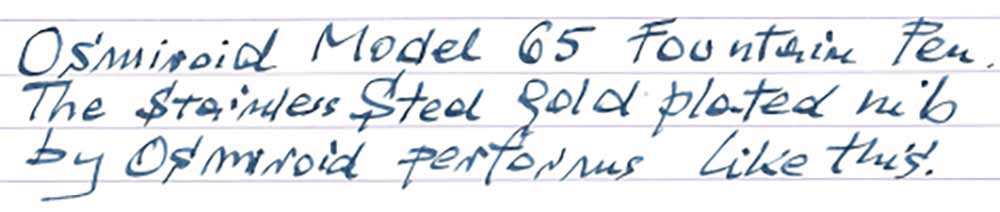 Osmiroid Model 65 Fountain Pen.
The Stainless Steel gold plated nib
by Osmiroid performs like this.